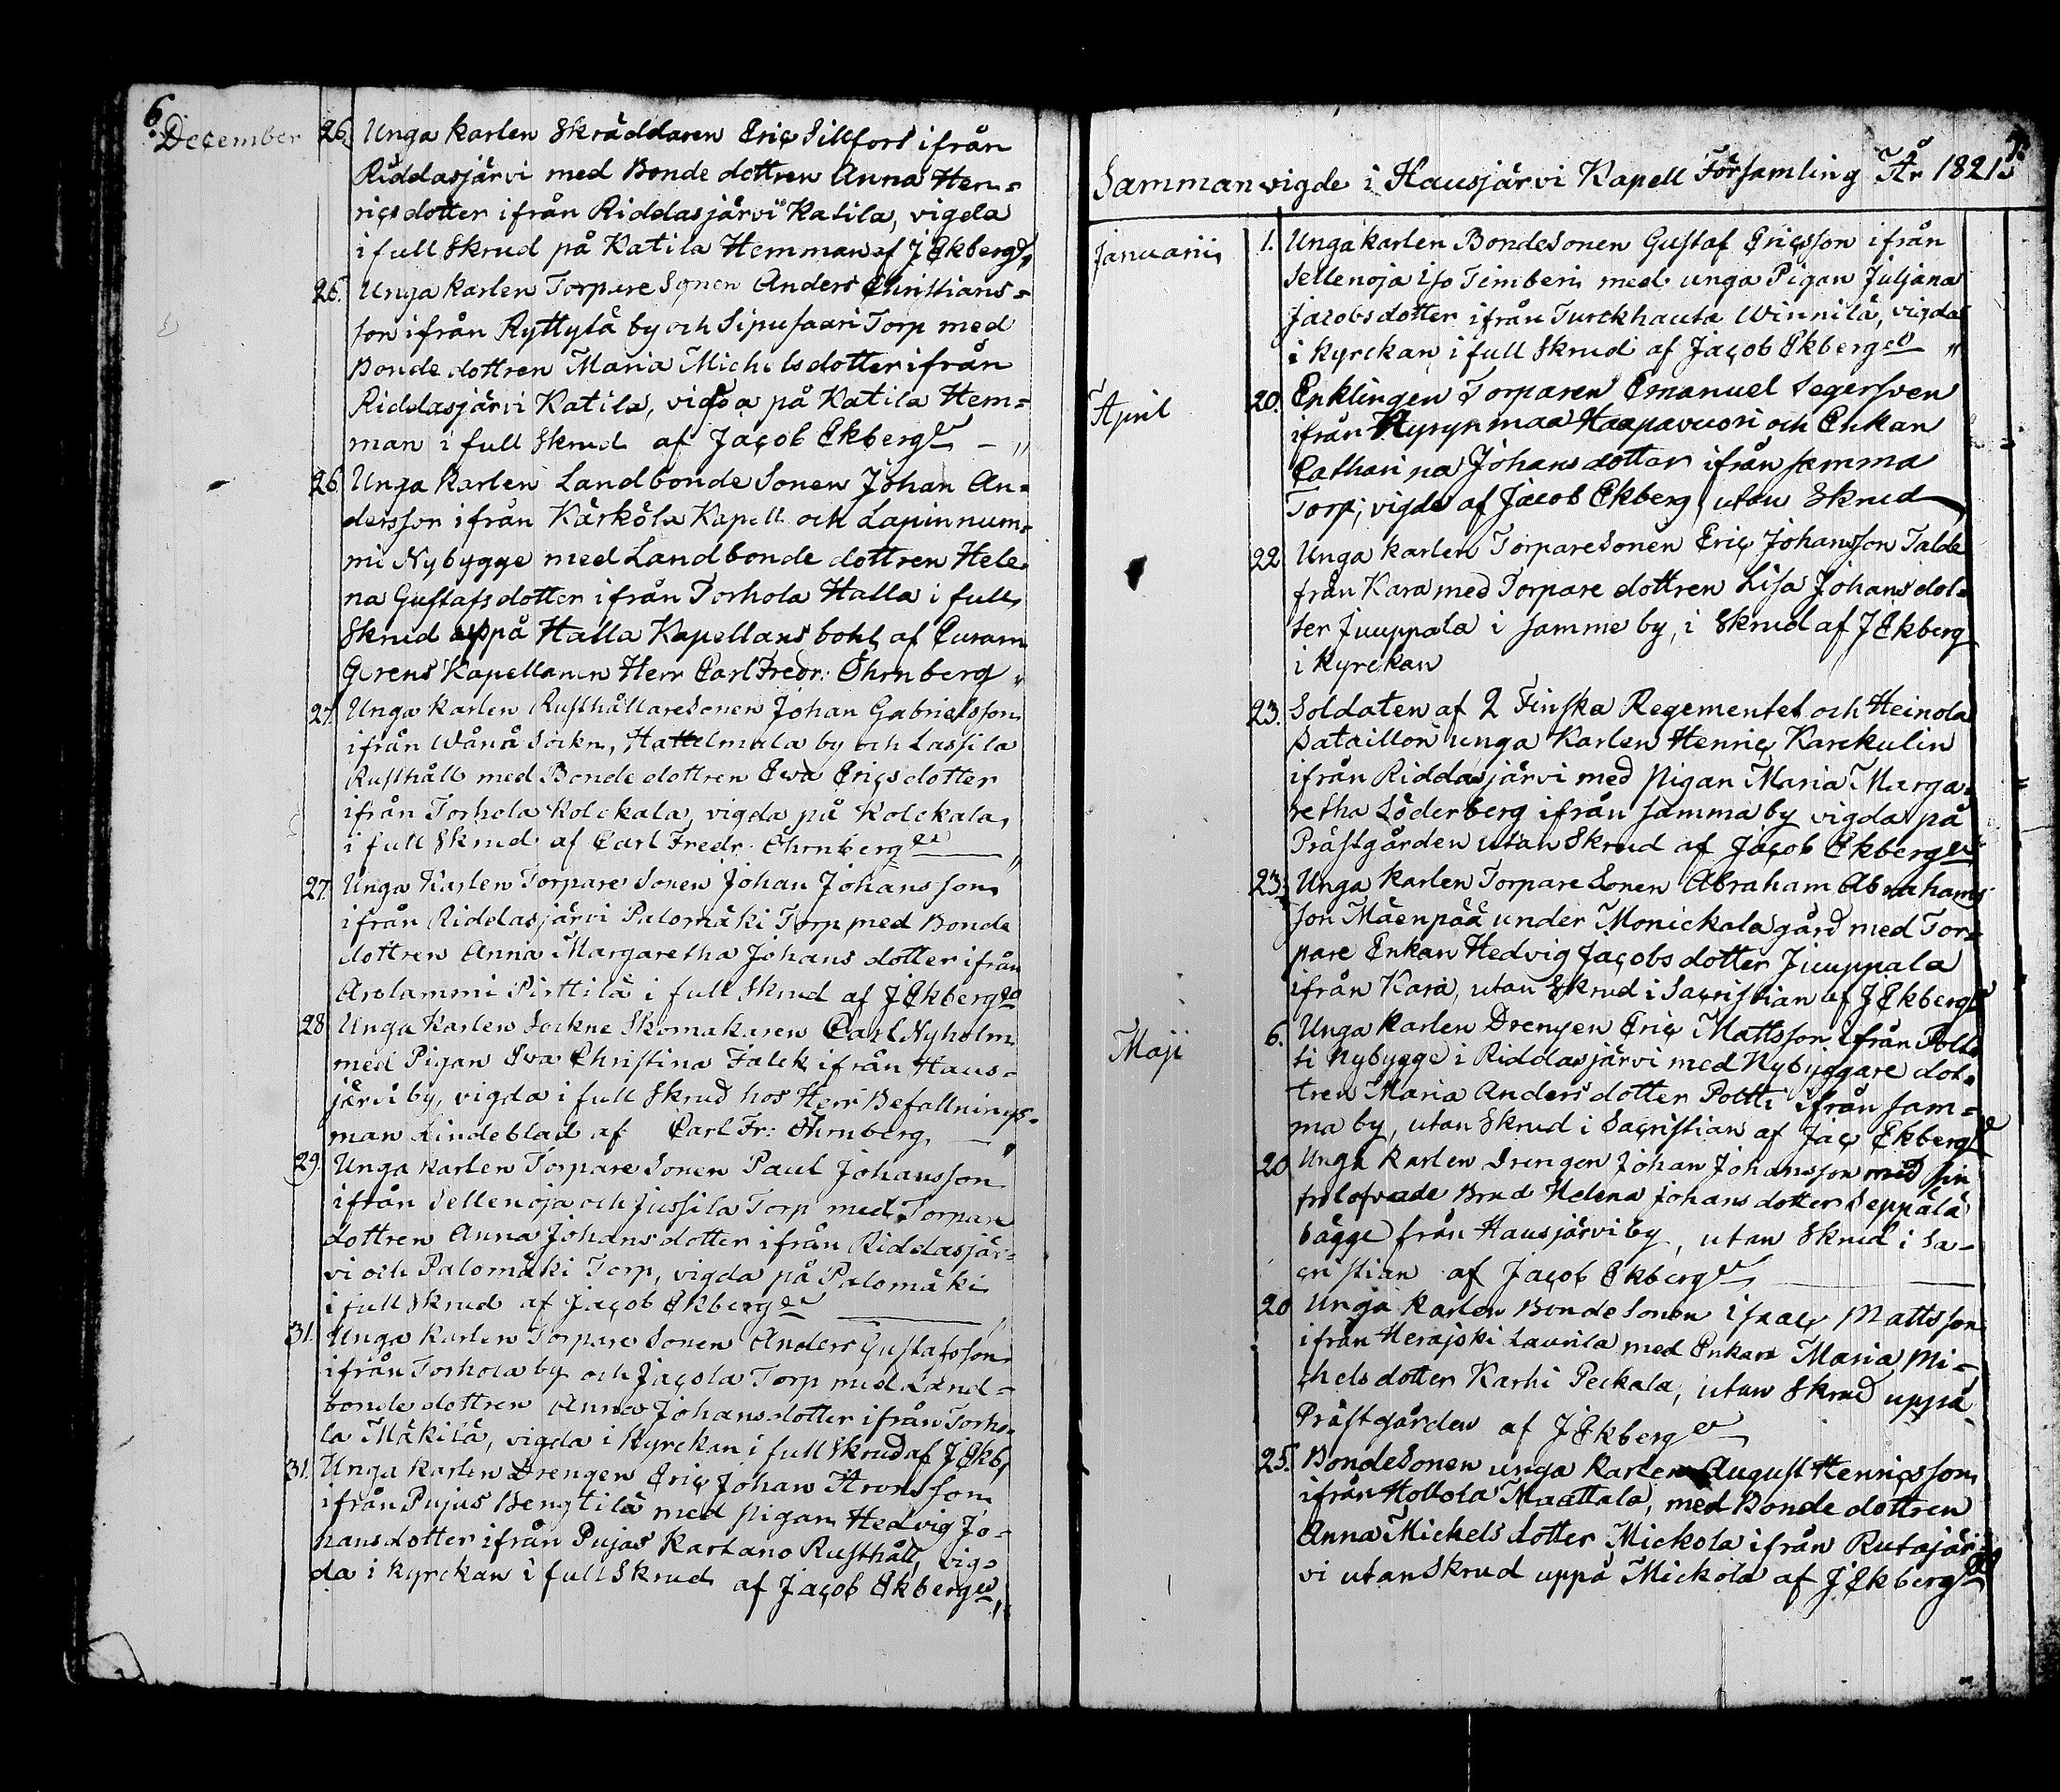 6.
December 26. Unga karlen Skräddaren Eriç Sillfors ifrån
Riddasjärvi med Bonde dottren Anna Hen=
riçsdotter ifrån Riddasjärvi Katila, vigda
i full Skrud på Katila Hemman af J Ekberg
26. Unga karlen Torpare Sonen Anders Christians=
son ifrån Ryttylä by och Sipusaari Torp med
Bonde dottren Maria Michelsdotter ifrån
Riddasjärvi Katila, vigda på Katila Hem=
man i full Skrud af Jaçob Ekberg
26 Unga Karlen Landbonde Sonen Johan An=
dersson ifrån Kärkölä Kapell och Lapinnum=
mi Nybygge med Landbonde dottren Hele=
na Gustafsdotter ifrån Torhola Halla i full
Skrud uppå Halla Kapellans bohl, af Curam
Gerens Kapellanen Herr Carl Fredr: Öhrnberg
27. Unga karlen Rusthållare Sonen Johan Gabrielsson
ifrån Wånå Sockn, Hattelmala by och Lassila
Rusthåll med Bonde dottren Ewa Eriçsdotter
ifrån Torhola Kolckala, vigda på Kolckala,
i full Skrud af Carl Fredr. Öhrnberg
27. Unga Karlen Torpare Sonen Johan Johansson
ifrån Riddasjärvi Palomäki Torp med Bonde
dottren Anna Margaretha Johans dotter ifrån
Arolammi Pirttilä i full Skrud af J Ekberg
28 Unga Karlen Sockne Skomakaren Carl Nyholm
med Pigan Eva Christina Falck ifrån Haus=
järvi by, vigda i full Skrud hos Herr Befallnings=
man Lindeblad af Carl Fr: Öhrnberg,
29. Unga karlen Torpare Sonen Paul Johansson
ifrån Sellenoja och Jussila Torp med Torpare
dottren Anna Johans dotter ifrån Riddasjär=
vi och Palomäki Torp, vigda på Palomäki
i full Skrud af Jaçob Ekberg
31. Unga karlen Torpare Sonen Anders Gustafsson
ifrån Torhola by och Jaçola Torp med Land=
bonde dottren Anna Johansdotter ifrån Torho=
la Mäkilä, vigda i Kyrckan i full Skrud af J Ekb,
31. Unga Karlen Drengen Eriç Johan
ifrån Pujas Bengtilä med pigan Hedvig Jo=
hansdotter ifrån Pujas Kartano Rusthåll, vig=
da i kyrckan i full Skrud af Jaçob Ekberg
7.
Sammanvigde i Hausjärvi Kapell Församling År 1821.
Januarii 1. Unga karlen Bonde Sonen Gustaf Eriçsson ifrån
Sellenoja iso Timberi med unga Pigan Juljana
Jacobsdotter ifrån Turckhauta Winnilä, vigda
i Kyrckan i full Skrud af Jaçob Ekberg
April 20. Enklingen Torparen Emanuel Segersven
ifrån Haapavuori och Enkan
Catharina Johans dotter ifrån samma
Torp, vigde af Jacob Ekberg utan Skrud
22 Unga karlen Torpare Sonen Eriç Johansson Talde
från Kara med Torpare dottren Lisa Johansdot=
ter Juuppala i samme by, i Skrud af J Ekberg
i Kyrckan
23. Soldaten af 2 Finska Regementet och Heinola
Bataillon unga Karlen Henriç Karckulin
ifrån Riddasjärvi med pigan Maria Marga=
retha Söderberg ifrån samma by vigda på
Prästgården utan Skrud af Jaçob Ekberg
23. Unga karlen Torpare Sonen Abraham Abrahams
son Mäenpää under Monickala gård med Tor=
pare Enkan Hedvig Jaçobs dotter Juuppala
ifrån Kara, utan Skrud i Saçristian af J Ekberg
Maji 6. Unga karlen Drengen Eriç Mattsson ifrån Poltt
ti Nybygge i Riddasjärvi med Nybyggare dot=
tren Maria Anders dotter Poltti ifrån sam=
ma by, utan Skrud i Saçristian af Jaç Ekberg
20 Unga karlen Drengen Johan Johansson med sin
trolofvade Brud Helena Johans dotter Seppälä
bägge från Hausjärvi by, utan Skrud i Sa=
çristian af Jaçob Ekberg
20 Unga karlen Bonde Sonen Isaaç Mattsson
ifrån Herajoki Laurila med Enkan Maria Mi=
chels dotter Karhi Peckala, utan Skrud uppå
Prästgården af J Ekberg
25. Bonde Sonen unga karlen August Henriçsson
ifrån Hollola Maattala, med Bonde dottren
Anna Mickels dotter Mickola ifrån Rutajär=
vi utan Skrud uppå Mickola af J Ekberg